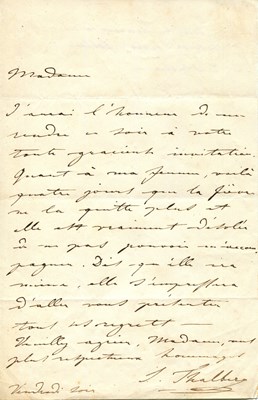 Madame
J'aurai l'honneur de me
rendre ce soir à votre
toute gracieuse invitation.
Quant à ma femme, voilà
quatre jours que la fièvre
ne la quitte plus et
elle est vraiment désolée
de ne pas pouvoir m'accom
pagner. Dès qu'elle sera
mieux, elle s'empressera
d'aller vous présenter
tout ses regrets
Veuillez agréer, Madame, mes
plus respectueux hommages
S. Thalberg
Vendredi soir